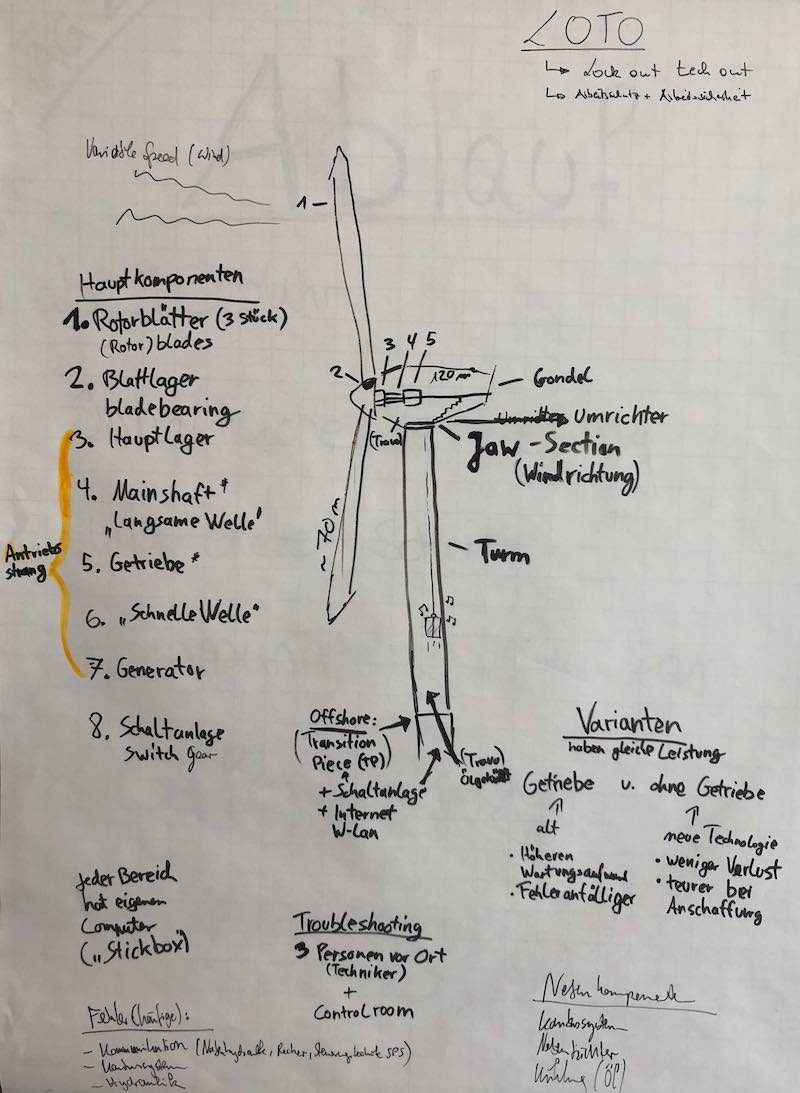 LOTO
↳ Lock out tech out
↳ Arbeitsschutz + Arbeitssicherheit
Variable Speed (Wind)
1
Hauptkomponenten
1. Rotorblätter (3 Stück)
(Rotor) blades
2. Blattlager
bladebearing
3. Hauptlager
4. Mainshaft*
"Langsame Welle"
5. Getriebe *
6. "Schnelle Welle"
7. Generator
8. Schaltanlage
switch gear
Antriebs
strang
2
3 4 5
120 m²
Gondel
Umrichter
(Travo)
Jaw - Section
(Windrichtung)
~ 70 m
Turm
Offshore:
(Transition
Piece (TP)
+ Schaltanlage
+ Internet
W-Lan
(Travo)
Ölgekühlt
Varianten
haben gleiche Leistung
Getriebe u. ohne Getriebe
alt
• Höheren
Wartungsaufwand
• Fehleranfälliger
neue Technologie
• weniger Verlust
• teurer bei
Anschaffung
Jeder Bereich
hat eigenen
Computer
("Stickbox")
Troubleshooting
3 Personen vor Ort
(Techniker)
+
Control room
Fehler (häufige):
- Kommunikation
- Hydraulik
Nebenkomponente
Kühlung (Öl)
Ablauf